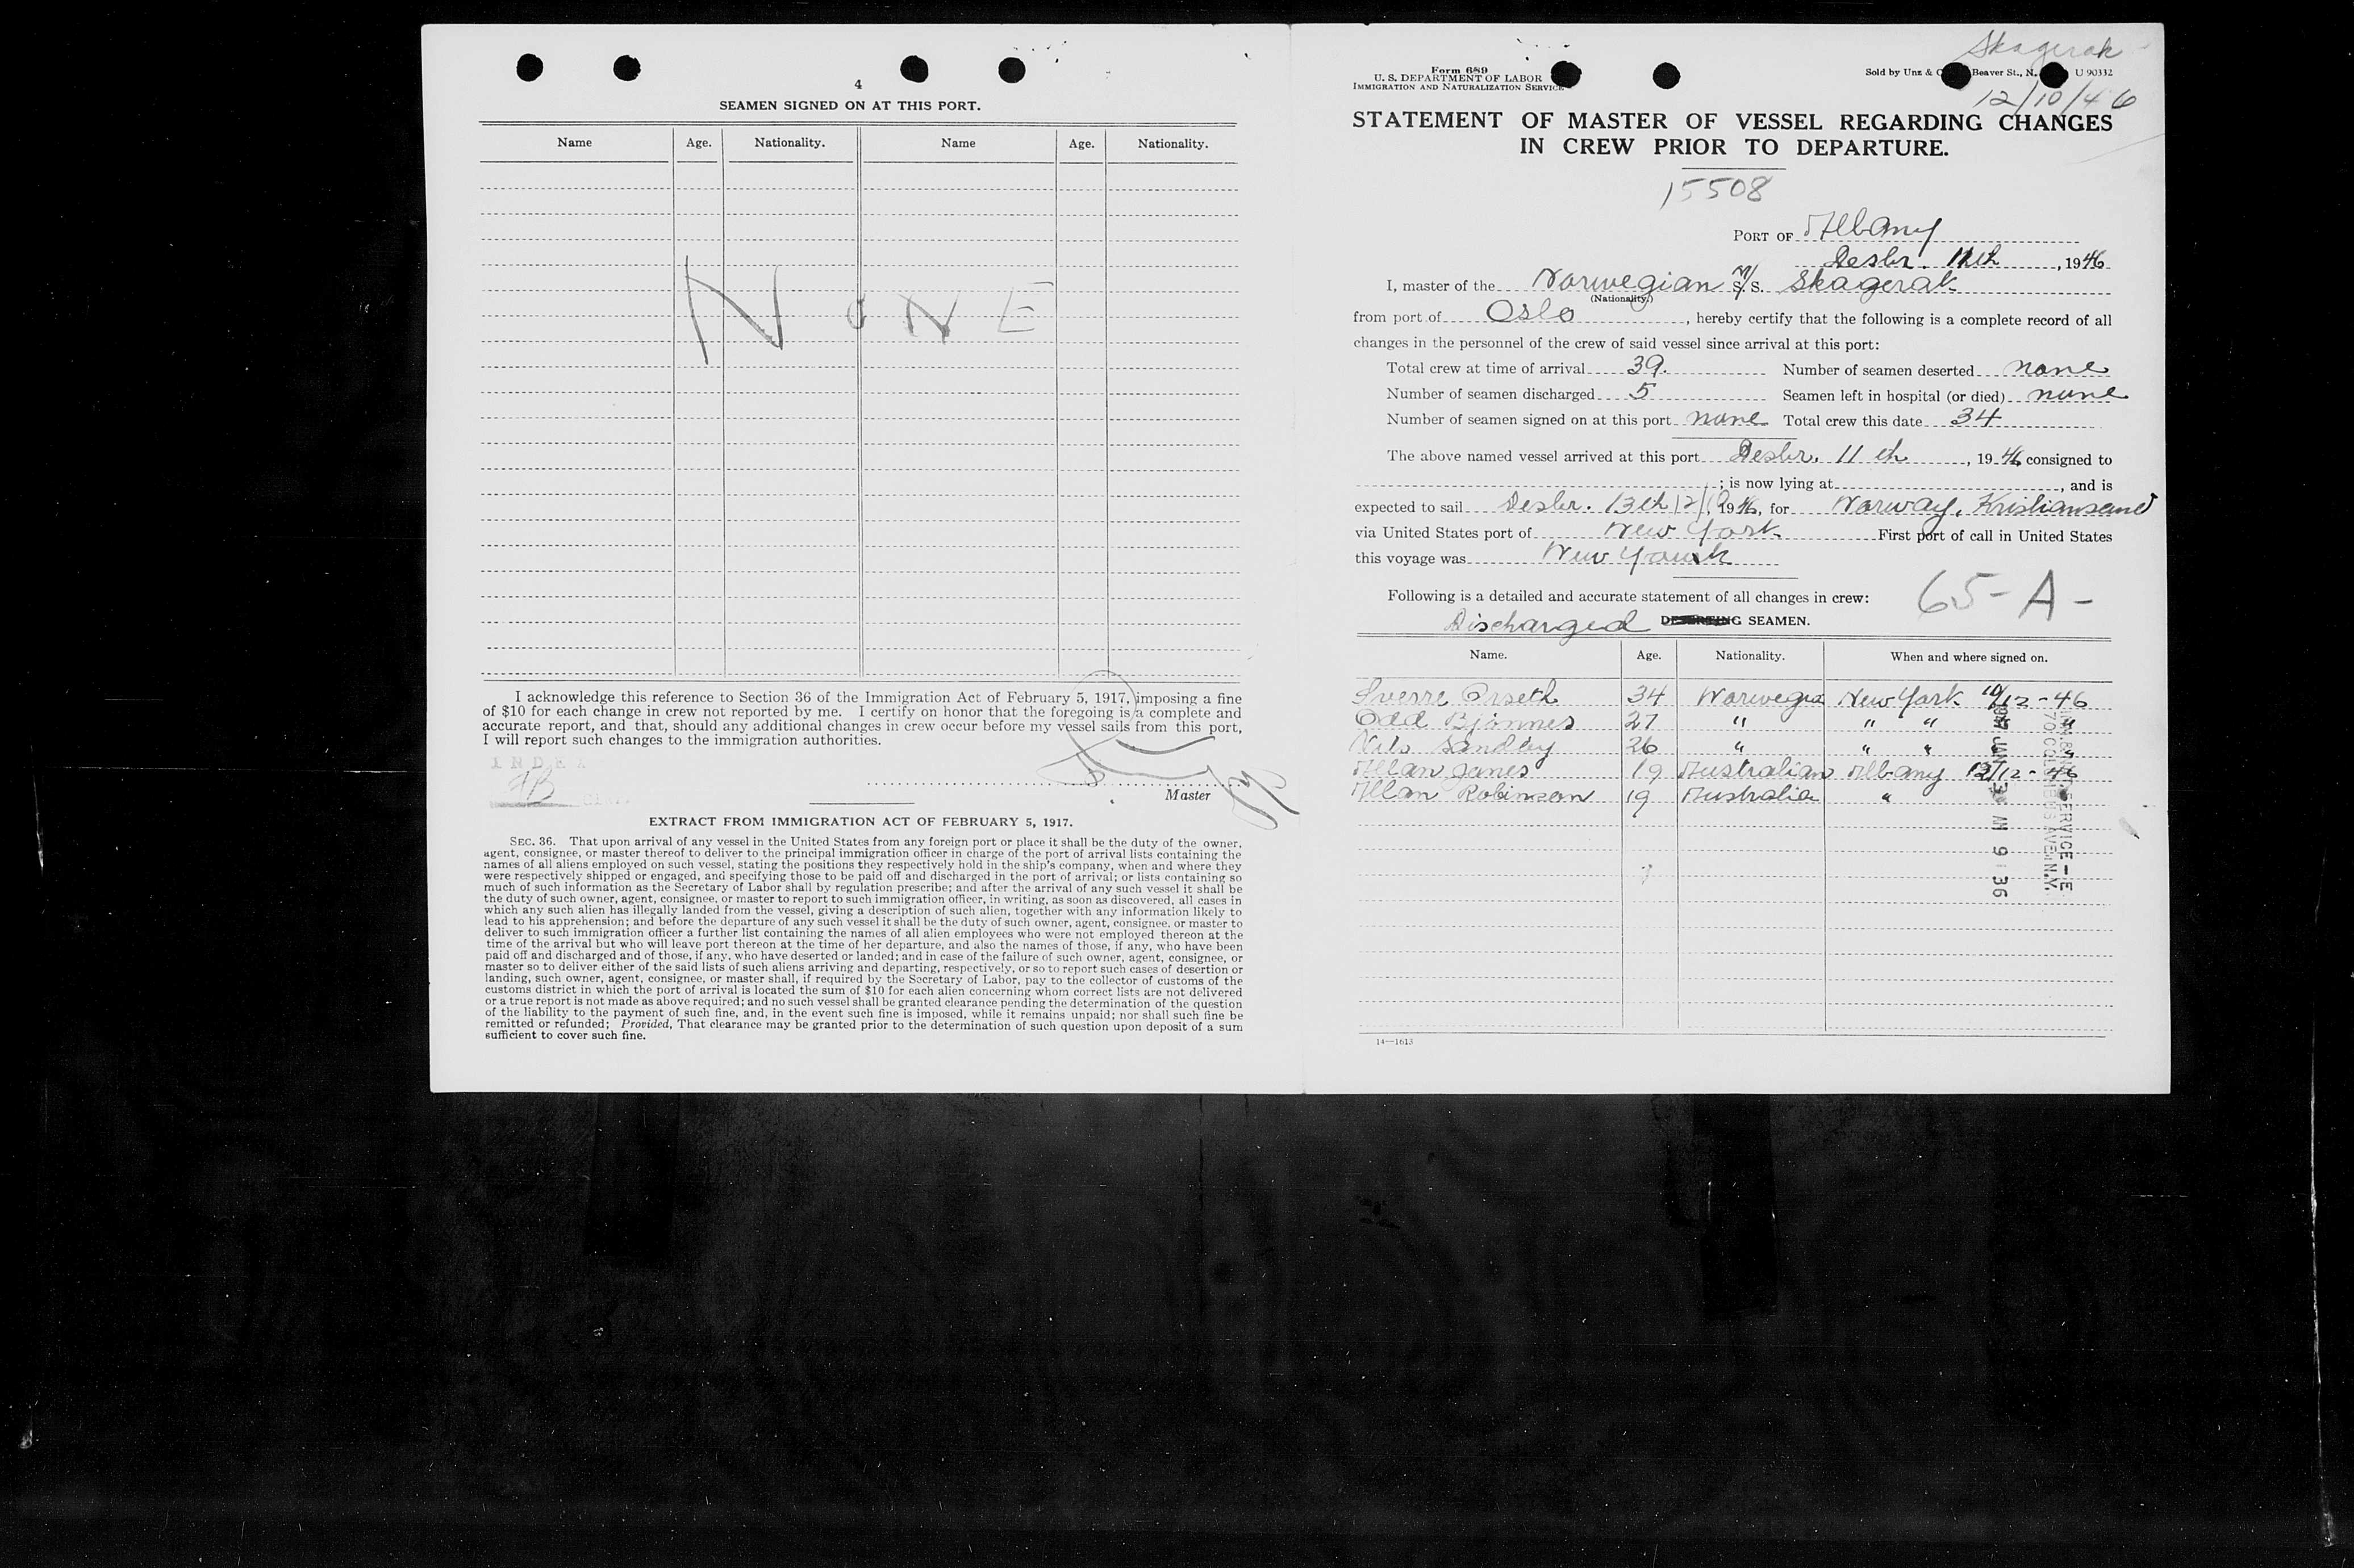 4
SEAMEN SIGNED ON AT THIS PORT.
Name Age. Nationality. Name Age. Nationality.
NoNE
I acknowledge this reference to Section 36 of the Immigration Act of February 5, 1917, imposing a fine
of $10 for each change in crew not reported by me. I certify on honor that the foregoing is a complete and
accurate report, and that, should any additional changes in crew occur before my vessel sails from this port,
I will report such changes to the immigration authorities.
INDEX
Master
EXTRACT FROM IMMIGRATION ACT OF FEBRUARY 5, 1917.
SEC. 36. That upon arrival of any vessel in the United States from any foreign port or place it shall be the duty of the owner,
agent, consignee, or master thereof to deliver to the principal immigration officer in charge of the port of arrival lists containing the
names of all aliens employed on such vessel, stating the positions they respectively hold in the ship's company, when and where they
were respectively shipped or engaged, and specifying those to be paid off and discharged in the port of arrival; or lists containing so
much of such information as the Secretary of Labor shall by regulation prescribe; and after the arrival of any such vessel it shall be
the duty of such owner, agent, consignee, or master to report to such immigration officer, in writing, as soon as discovered, all cases in
which any such alien has illegally landed from the vessel, giving a description of such alien, together with any information likely to
lead to his apprehension; and before the departure of any such vessel it shall be the duty of such owner, agent, consignee, or master to
deliver to such immigration officer a further list containing the names of all alien employees who were not employed thereon at the
time of the arrival but who will leave port thereon at the time of her departure, and also the names of those, if any, who have been
paid off and discharged and of those, if any, who have deserted or landed; and in case of the failure of such owner, agent, consignee, or
master so to deliver either of the said lists of such aliens arriving and departing, respectively, or so to report such cases of desertion or
landing, such owner, agent, consignee, or master shall, if required by the Secretary of Labor, pay to the collector of customs of the
customs district in which the port of arrival is located the sum of $10 for each alien concerning whom correct lists are not delivered
or a true report is not made as above required; and no such vessel shall be granted clearance pending the determination of the question
of the liability to the payment of such fine, and, in the event such fine is imposed, while it remains unpaid; nor shall such fine be
remitted or refunded; Provided, That clearance may be granted prior to the determination of such question upon deposit of a sum
sufficient to cover such fine.
Skagerak
Form 689
U. S. DEPARTMENT OF LABOR
IMMIGRATION AND NATURALIZATION SERVICE
Sold by Unz & C Beaver St., N. U 90332
12/10/46
STATEMENT OF MASTER OF VESSEL REGARDING CHANGES
IN CREW PRIOR TO DEPARTURE.
15508
PORT OF Albany
Desbr. 11th, 1946
I, master of the Norwegian M/S. Skagerak
(Nationality)
from port of Oslo, hereby certify that the following is a complete record of all
changes in the personnel of the crew of said vessel since arrival at this port:
Total crew at time of arrival 39. Number of seamen deserted none
Number of seamen discharged 5 Seamen left in hospital (or died) none
Number of seamen signed on at this port none Total crew this date 34
The above named vessel arrived at this port Desbr. 11 th, 1946 consigned to
; is now lying at , and is
expected to sail Desbr. 13th, 1946, for Norway, Kristiansand
via United States port of New York First port of call in United States
this voyage was New Yourk
Following is a detailed and accurate statement of all changes in crew:
65-A-
Discharged SEAMEN.
Name. Age. Nationality. When and where signed on.
Sverre Orseth 34 Norwegia New York 10/12-46
Odd Bjønnes 27 " " " " "
Nils Sandby 26 " " " " "
Allan Janes 19 Australian Albany 12/12-46
Allan Robinson 19 Australia "
JAN 3 AM 9 36
SERVICE—E
70 COLUMBUS AVE. N.Y.
14—1613